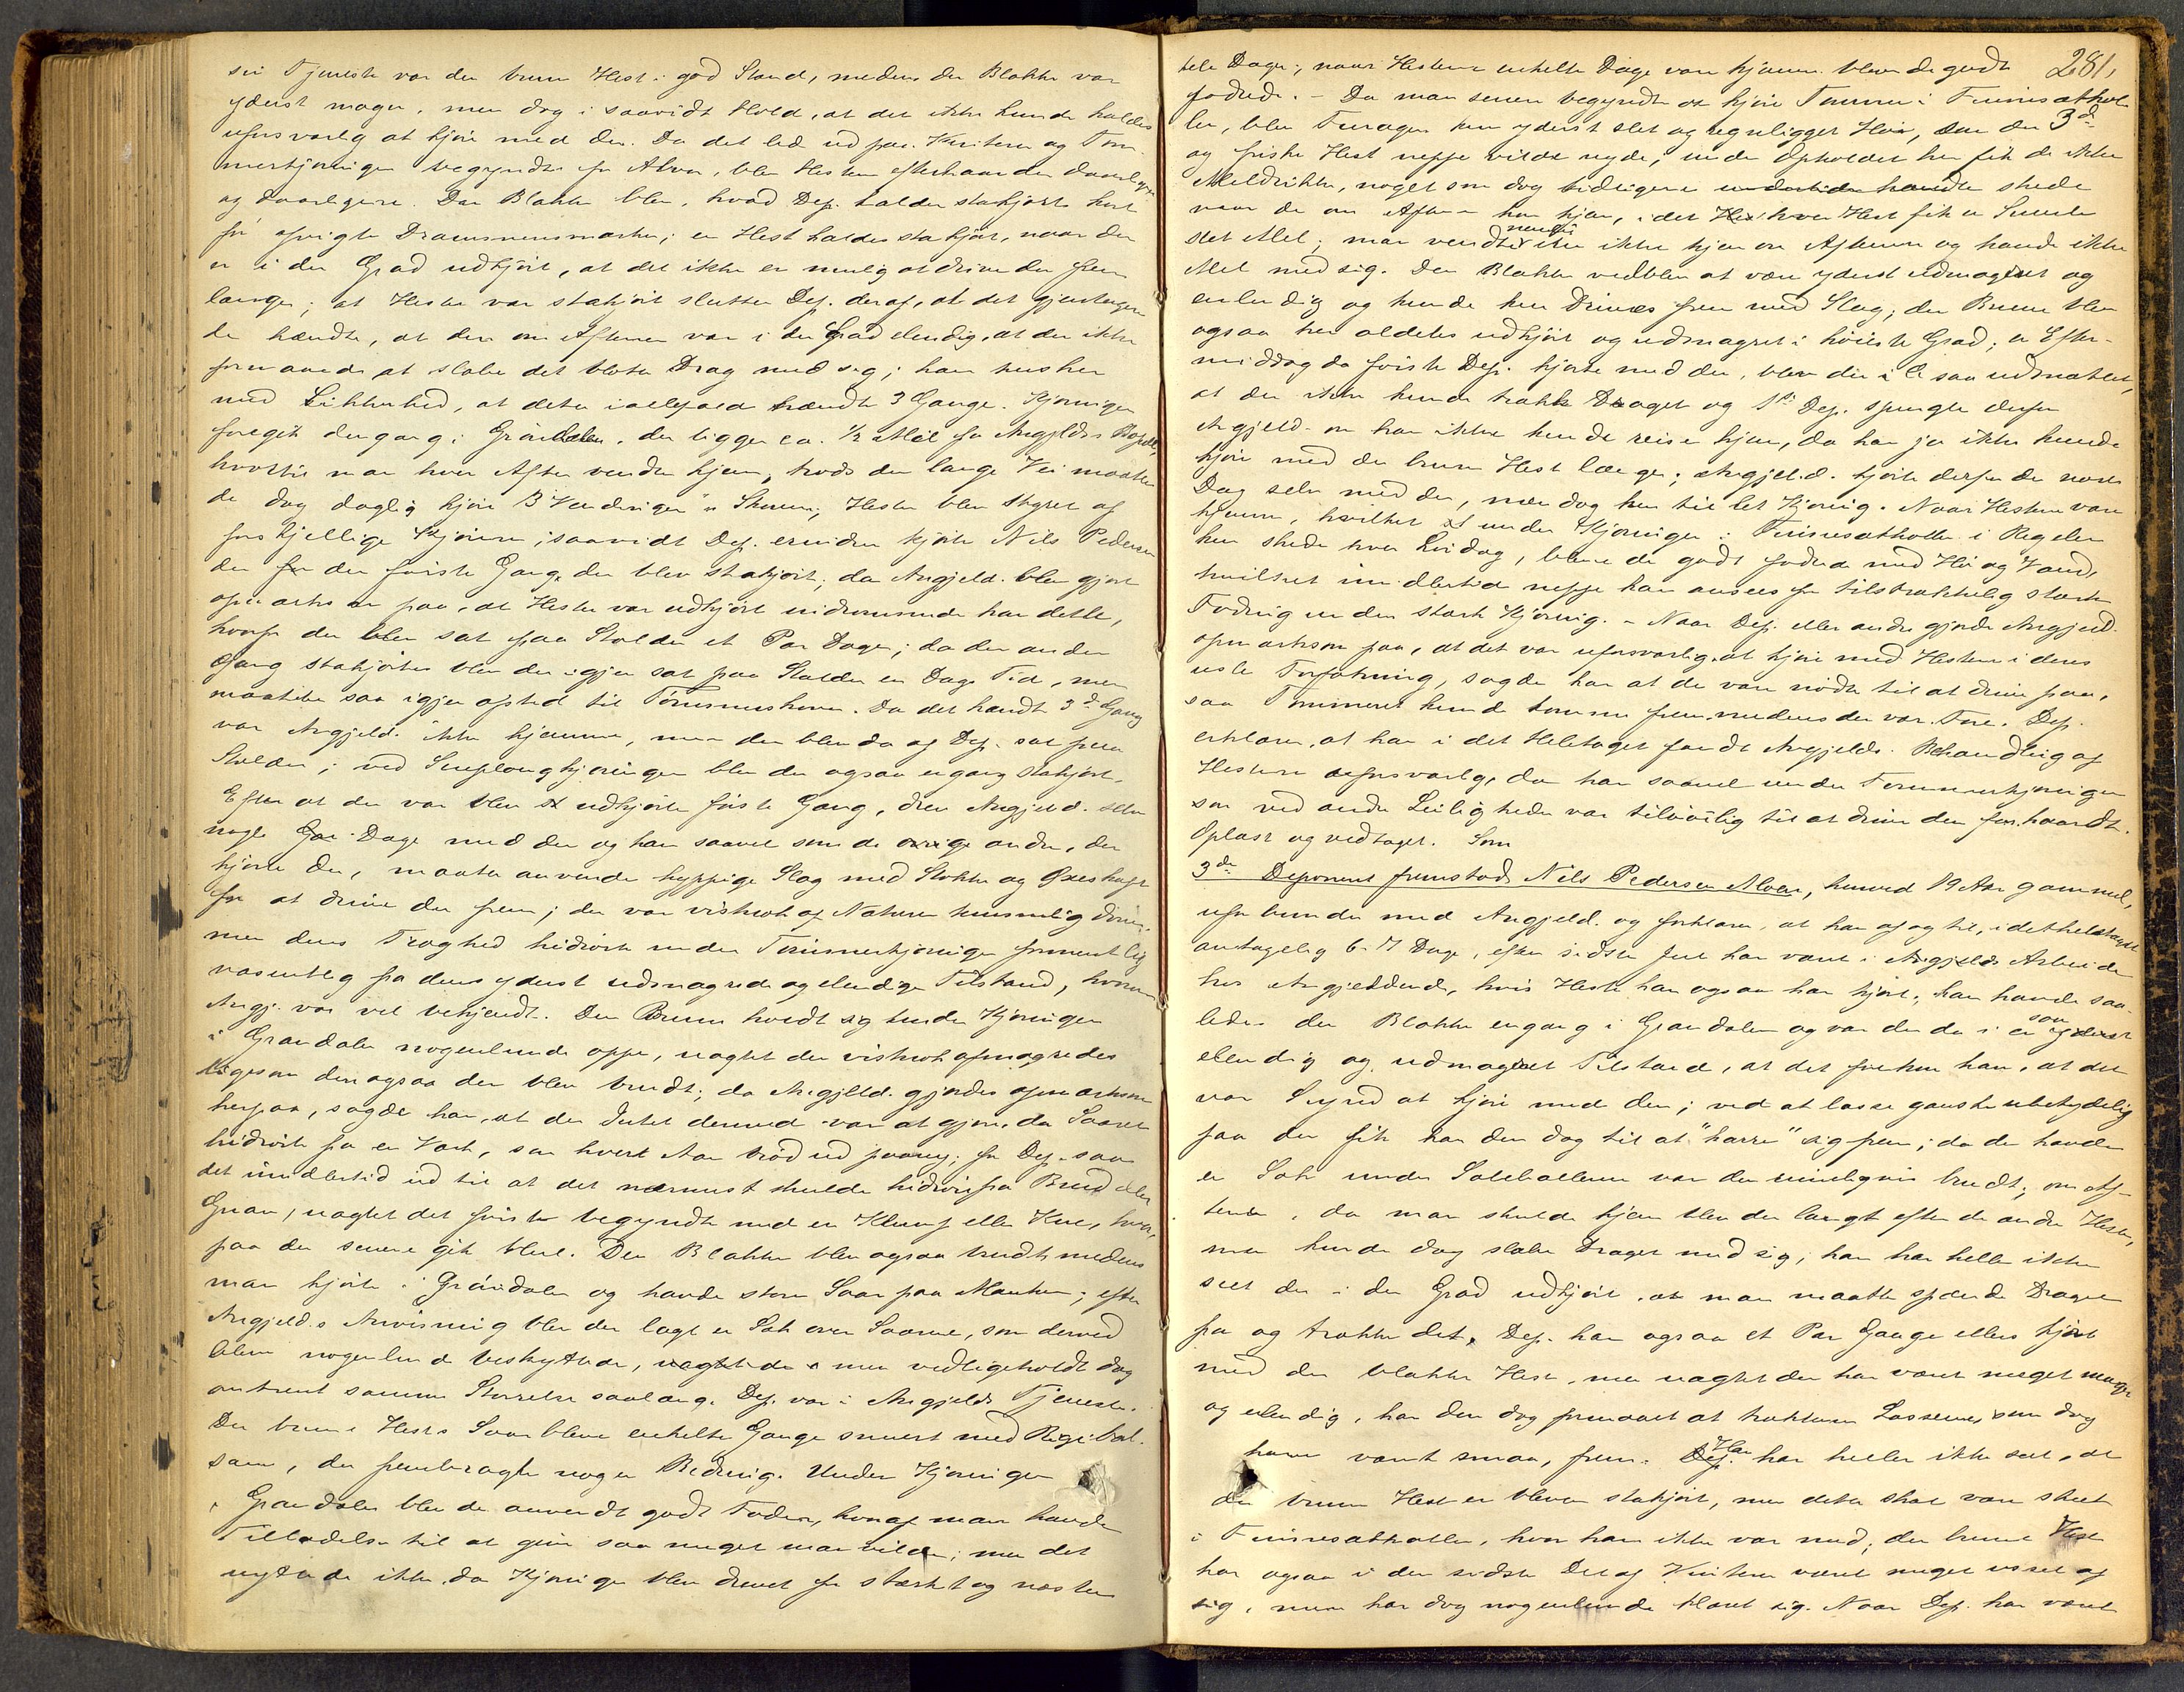 sin Tjeneste var den brune Hest i god Stand, medens den Blakke var
yderst mager, men dog i saavidt Hold, at det ikke kunde kaldes
uforsvarlig at kjøre med den. Da det led ud paa Vinteren og Tøm-
merkjøringen begyndte for Alvor, blev Hesten efterhaanden daarligere
og daarligere. Den Blakke blev, hvad Dep. kalder stakjørt
en Hest kaldes stakjørt, naar den
er i den Grad udkjørt, at det ikke er mulig at drive den frem
længer; at Hesten var stakjørt slutter Dep. deraf, at det gjentagen-
de hændte, at den om Aftenen var i den Grad elendig, at den ikke
formaaede at slæbe det blotte Drag med sig; han husker
med Sikkerhed, at dette ialfald hændte 3 Gange. Kjøringen
foregik dengang i Grándalen, der ligger ca. 1/2 Mil fra Angjeldtes Bopæl,
hvortil man hver Aften vendte hjem, trods den lange Vei maatte
de dog daglig kjøre 3 "Vendinger" Hesten blev styret af
forskjellige Kjørere; saavidt Dep. erindrer kjørte Nils Pedersen
den for den første Gang den blev stakjørt; da Angjeld. blev gjort
opmærksom paa, at Hesten var udkjørt indrømmede han dette,
hvorfor den blev sat paa Stalden et Par Dage; da den anden
Gang stakjørtes blev den igjen sat paa Stalden en Dags Tid, men
maatte saa igjen afsted til Tømmerskoven. Da det hændte 3die Gang
var Angjeld. ikke hjemme, men den blev da af Dep. sat paa
Stalden; ved Sneplougkjøringen blev den ogsaa engang stakjørt.
Efter at den var blevet udkjørt første Gang, drev Angjeld. selv
nogle Dage med den og han saavel som de andre, der
kjørte den, maatte anvende hyppige Slag med Stokke og Øxeskaft
for at drive den frem; den var vistnok af Naturen temmelig doven,
men dens Træghed hidrørte under Tømmerkjøringen formentlig
væsentlig fra dens yderst udmagrede og elendige Tilstand, hvormed
Angj. var vel bekjendt. Den Brune holdt sig under Kjøringen
i Grandalen nogenlunde oppe, uagtet den vistnok afmagredes
ligesom den ogsaa der blev brudt; da Angjeld. gjordes opmærksom
herpaa, sagde han, at der Intet dermed var at gjøre, da Saaret
hidrørte fra en Vork, som hvert Aar brød ud paany; for Dep. saa
det imidlertid ud til at det nærmest skulde hidrøre fra Brud eller
Gnav, uagtet det første begyndte med en Klump eller Kul, hvor-
paa der senere gik Hul. Den Blakke blev ogsaa brudt medens
man kjørte i Grándalen og havde store Saar paa Manken; efter
Angjeld.s Anvisning blev der lagt en Sæk over Saarene, som derved
bleve nogenlunde beskyttede, men vedligeholdt dog
omtrent samme Størrelse saalænge Dep. var i Angjelds Tjeneste.
Den brune Hests Saar bleve enkelte Gange smurt med Rigabal-
sam, der frembragte nogen Bedring. Under Kjøringen
i Grandalen blev der anvendt godt Foder, hvoraf man havde
Tilladelse til at give saa meget man vilde; men det
nyttede ikke, da Kjøringen blev drevet for stærkt og næsten
281,
hele Dage; naar Hestene enkelte Dage vare hjemme bleve de godt
fodrede. – Da man senere begyndte at kjøre Tømmer i Finnesæthol-
len, blev Furagen kun yderst slet og regnligget Hø, som den 3die
og friske Hest neppe vilde nyde; under Opholdet her fik de ikke
Meldrikke, noget som dog tidligere skede
naar de om Aftenen kom hjem, idet hver Hest fik en Smule
slet Mel; man vendte nemlig ikke hjem om Aftenen og havde ikke
Mel med sig. Den Blakke vedblev at være yderst udmagret og
elendig og kunde kun drives frem med Slag; den Brune blev
ogsaa her aldeles udkjørt og udmagret i høieste Grad; en Efter-
middag da første Dep. kjørte med den, blev den saa udmattet,
at den ikke kunde trække Draget og 1ste Dep. spurgte derfor
Angjeld. om han ikke kunde reise hjem, da han jo ikke kunde
kjøre med den brune Hest længer; Angjeld. kjørte derfor den næste
Dag selv med den, men dog kun til let Kjøring. Naar Hestene vare
hjemme, hvilket under Kjøringen i Finnesæthollen i Regelen
kun skede hver Løverdag, bleve de godt fodrede med Hø og Vand,
hvilket imidlertid neppe kan ansees for tilstrækkelig stærk
Fodring under stærk Kjøring. – Naar Dep. eller andre gjorde Angjeld.
opmærksom paa, at det var uforsvarlig at kjøre med Hestene i deres
usle Forfatning, sagde han at de vare nødte til at drive paa,
saa Tømmeret kunde komme frem medens der var Føre. Dep.
erklærer, at han i det Heletaget fandt Angjelds. Behandling af
Hestene uforsvarlig, da han saavel under Tømmerkjøringen
som ved andre Leiligheder var tilbøielig til at drive dem for haardt.
Oplæst og vedtaget. Som
3die Deponent fremstod Nils Pedersen Moen, henved 19 Aar gammel,
ubeslægtet med Angjeld. og forklarer, at han af og til, i det hele taget
antagelig 6-7 Dage, efter sidste Jul har været i Arbeide
hos Angjeldende, hvis Heste han ogsaa har kjørt; han havde saa-
ledes den Blakke engang i Grandalen og var den da i en saa
elendig og udmagret Tilstand, at det forekom ham, at det
var Synd at kjøre med den; ved at læsse ganske ubetydelig
paa den fik han den dog til at "harre" sig frem; da den havde
en Sæk under Salebollerne var den rimeligvis brudt; om Af-
tenen, da man skulde hjem blev den langt efter de andre Heste,
men kunde dog slæbe Draget med sig; han har heller ikke
seet den i den Grad udkjørt, at man maatte spænde Draget
fra og trække det. Dep. har ogsaa et Par Gange ellers kjørt
med den blakke Hest, men uagtet den har været meget mager
og elendig, har den dog formaaet at trække Læssene, som dog
have været smaa, frem. Han har heller ikke seet, at
den brune Hest er bleven stakjørt, men dette skal være skeet
i Finnesæthollen, hvor han ikke var med; den brune Hest
har ogsaa i den sidste Del af Vinteren været meget ussel af
sig, men har dog nogenlunde klaret sig. Naar Dep. har været